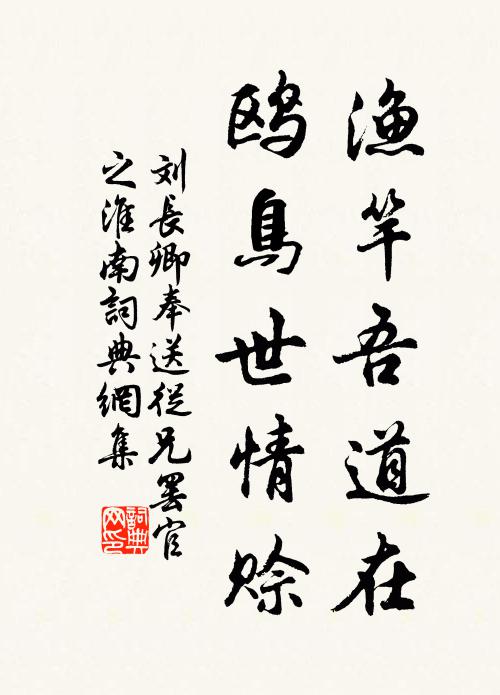 渔竿吾道在
鸥鳥世情赊
刘長卿奉送從兄罢官
之淮南詞典網集
詞典
网印